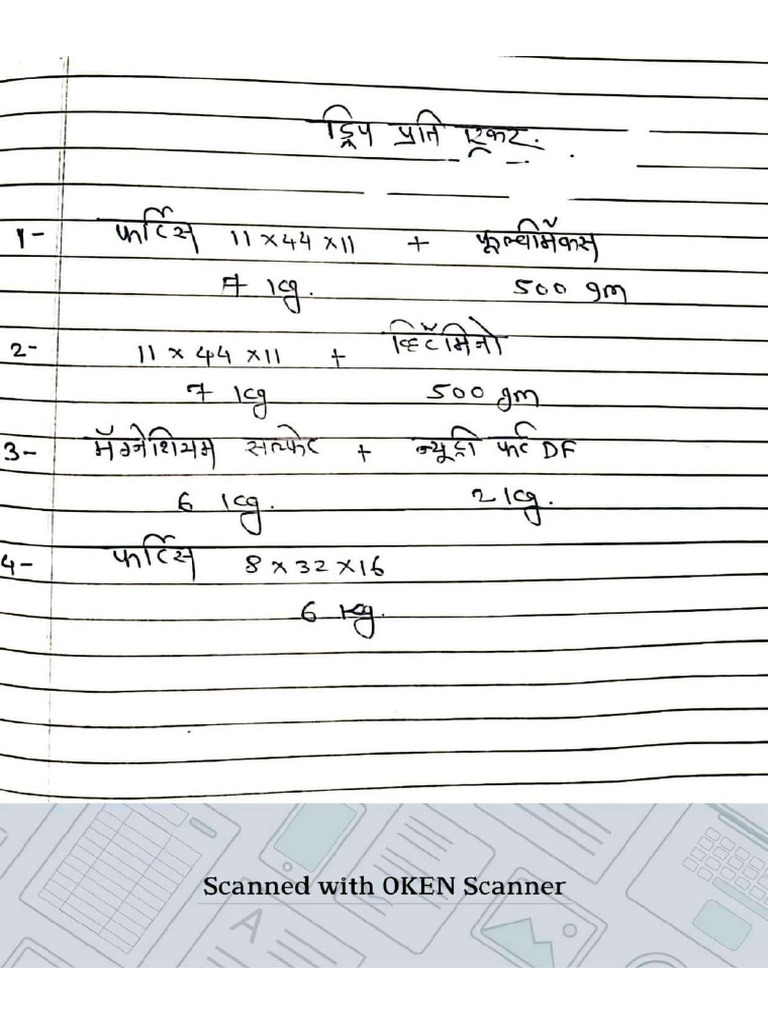 ड्रिप प्रति एकर.
1- फर्टिस 11 x 44 x 11 + फूल्वीमॅक्स
7 kg. 500 gm
2- 11 x 44 x 11 + व्हिटॅमिनो
7 kg 500 gm
3- मॅग्नेशियम सल्फेट + न्यूट्री फर्ट DF
6 kg. 2 kg.
4- फर्टिस 8 x 32 x 16
6 kg.
Scanned with OKEN Scanner